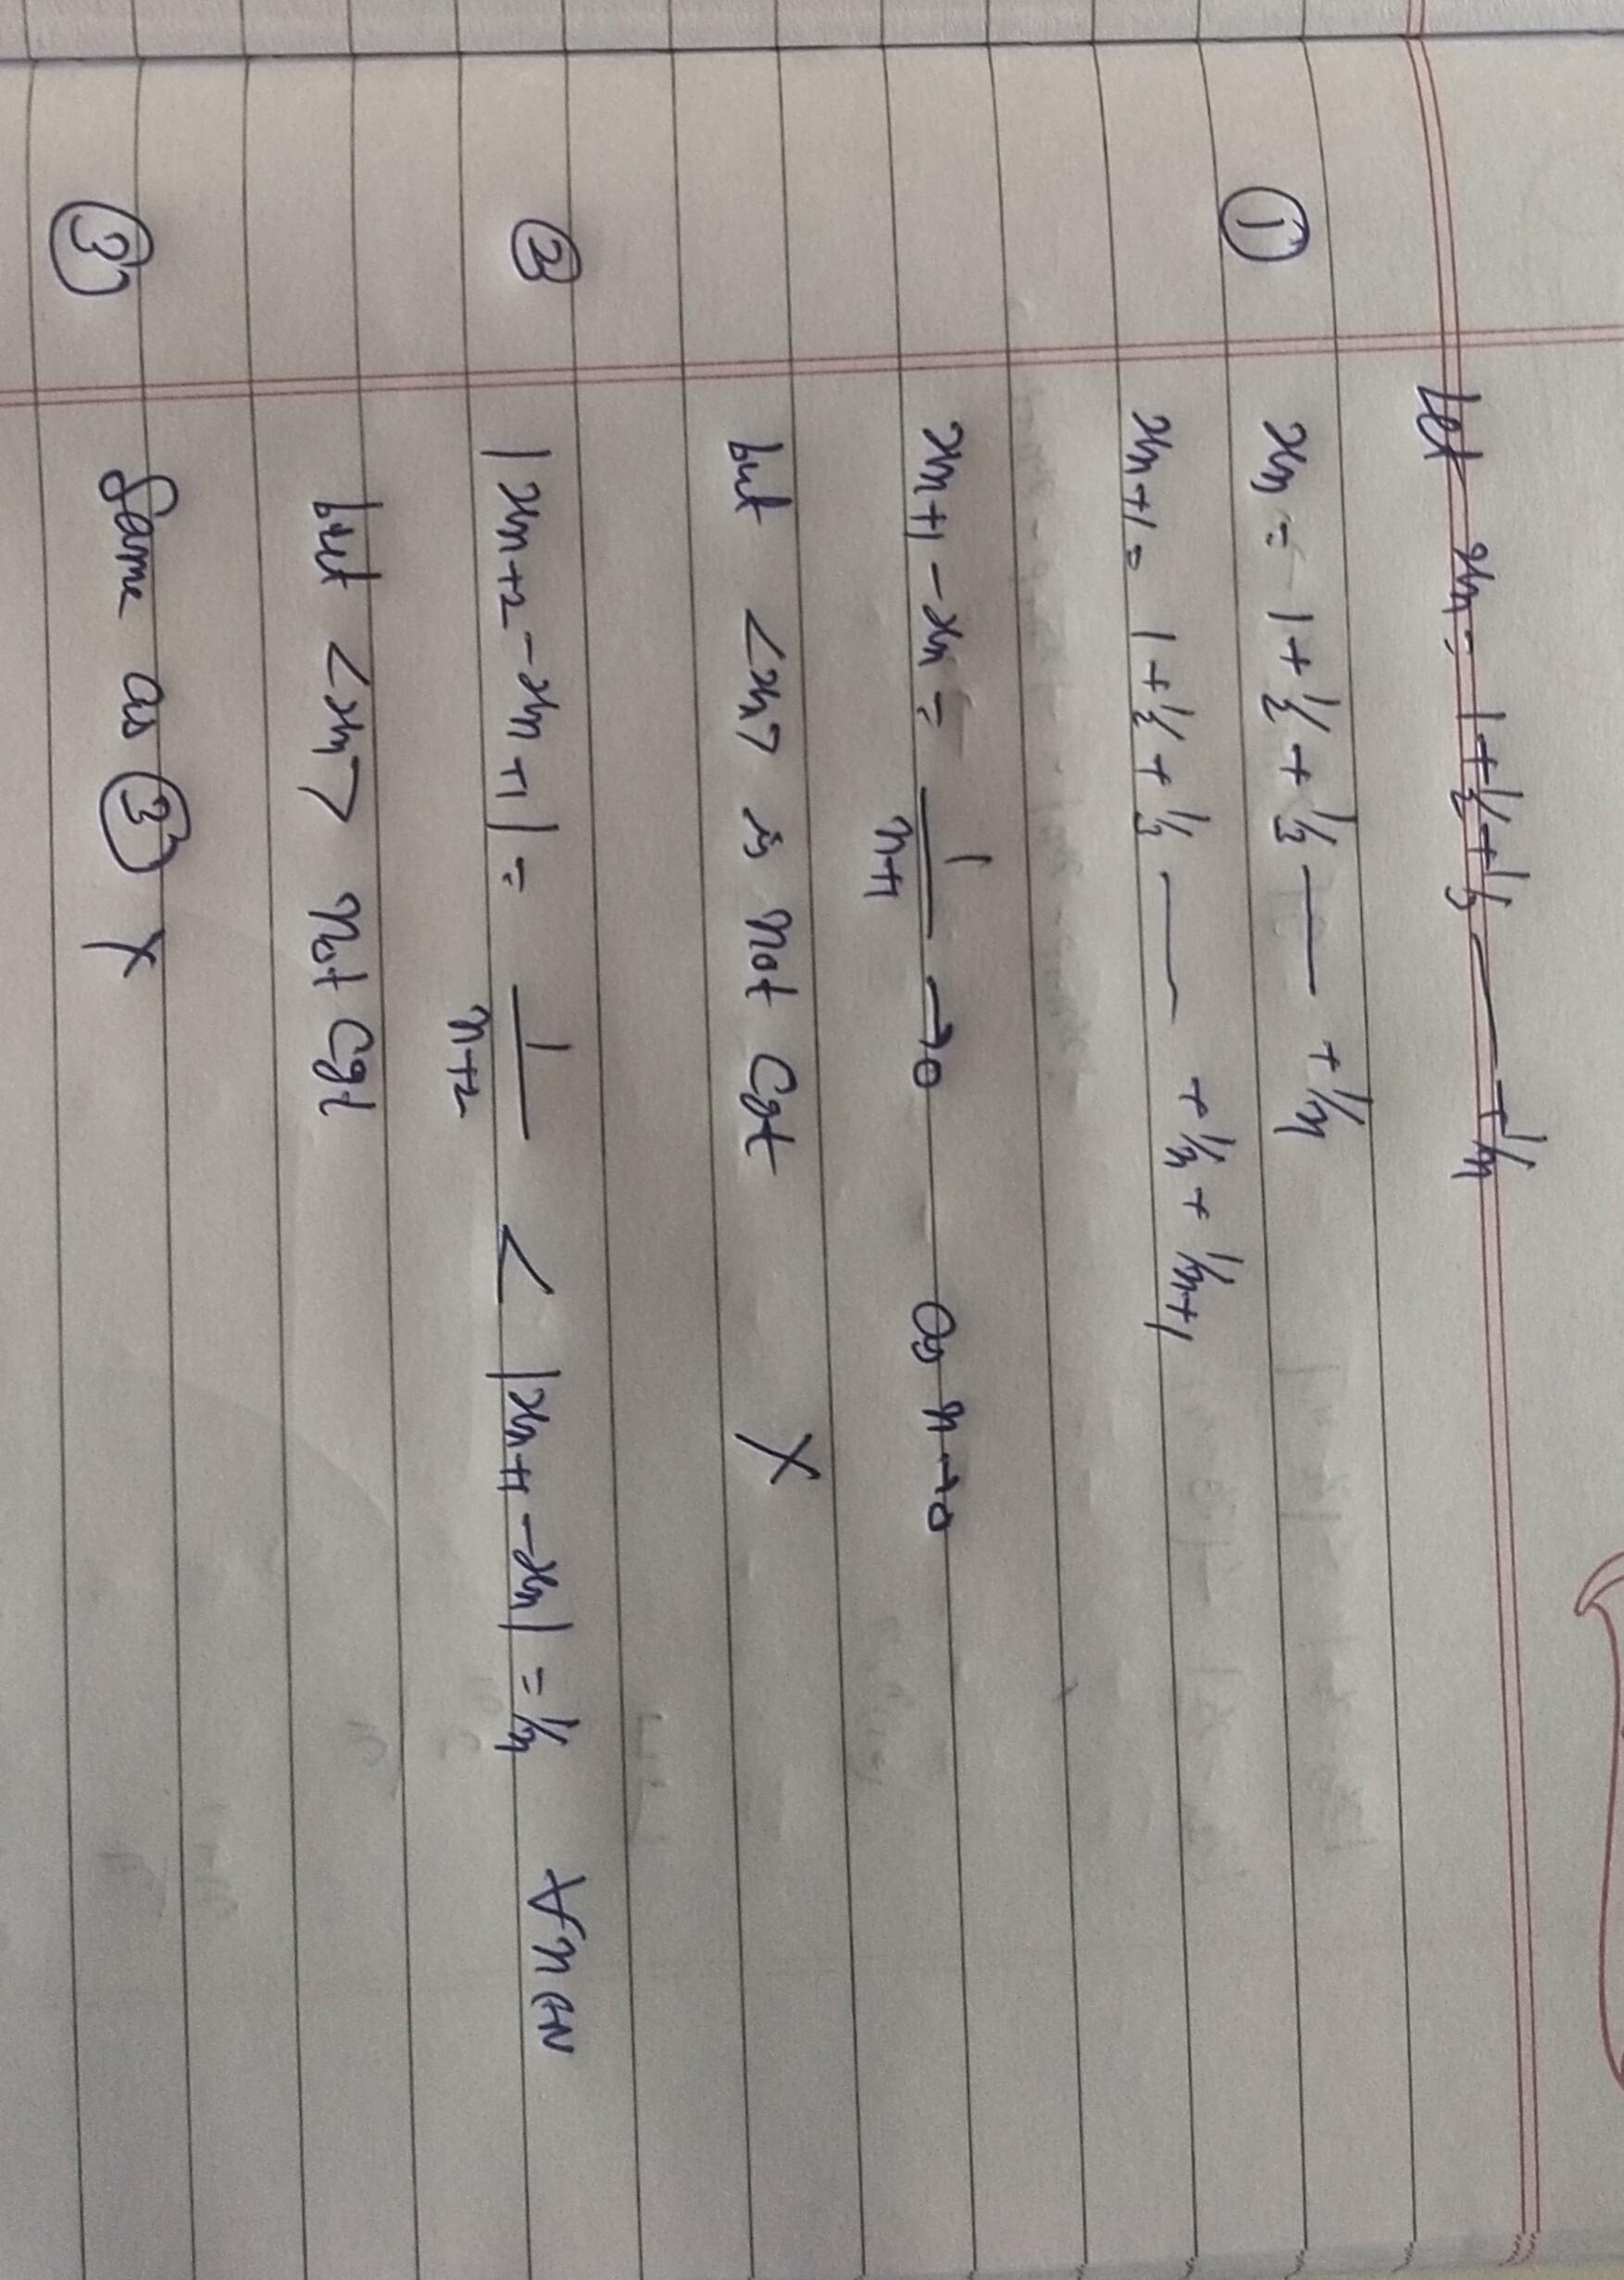 let xn = 1 + 1/2 + 1/3 —— + 1/n
① xn = 1 + 1/2 + 1/3 —— + 1/n
xn+1 = 1 + 1/2 + 1/3 —— + 1/n + 1/n+1
xn+1 - xn = 1/n+1 → 0 as n → 0
but <xn> is not Cgt X
② |xn+2 - xn+1| = 1/n+2 < |xn+1 - xn| = 1/n ∀ n ∈ N
but <xn> not Cgt
③ Same as ③ X